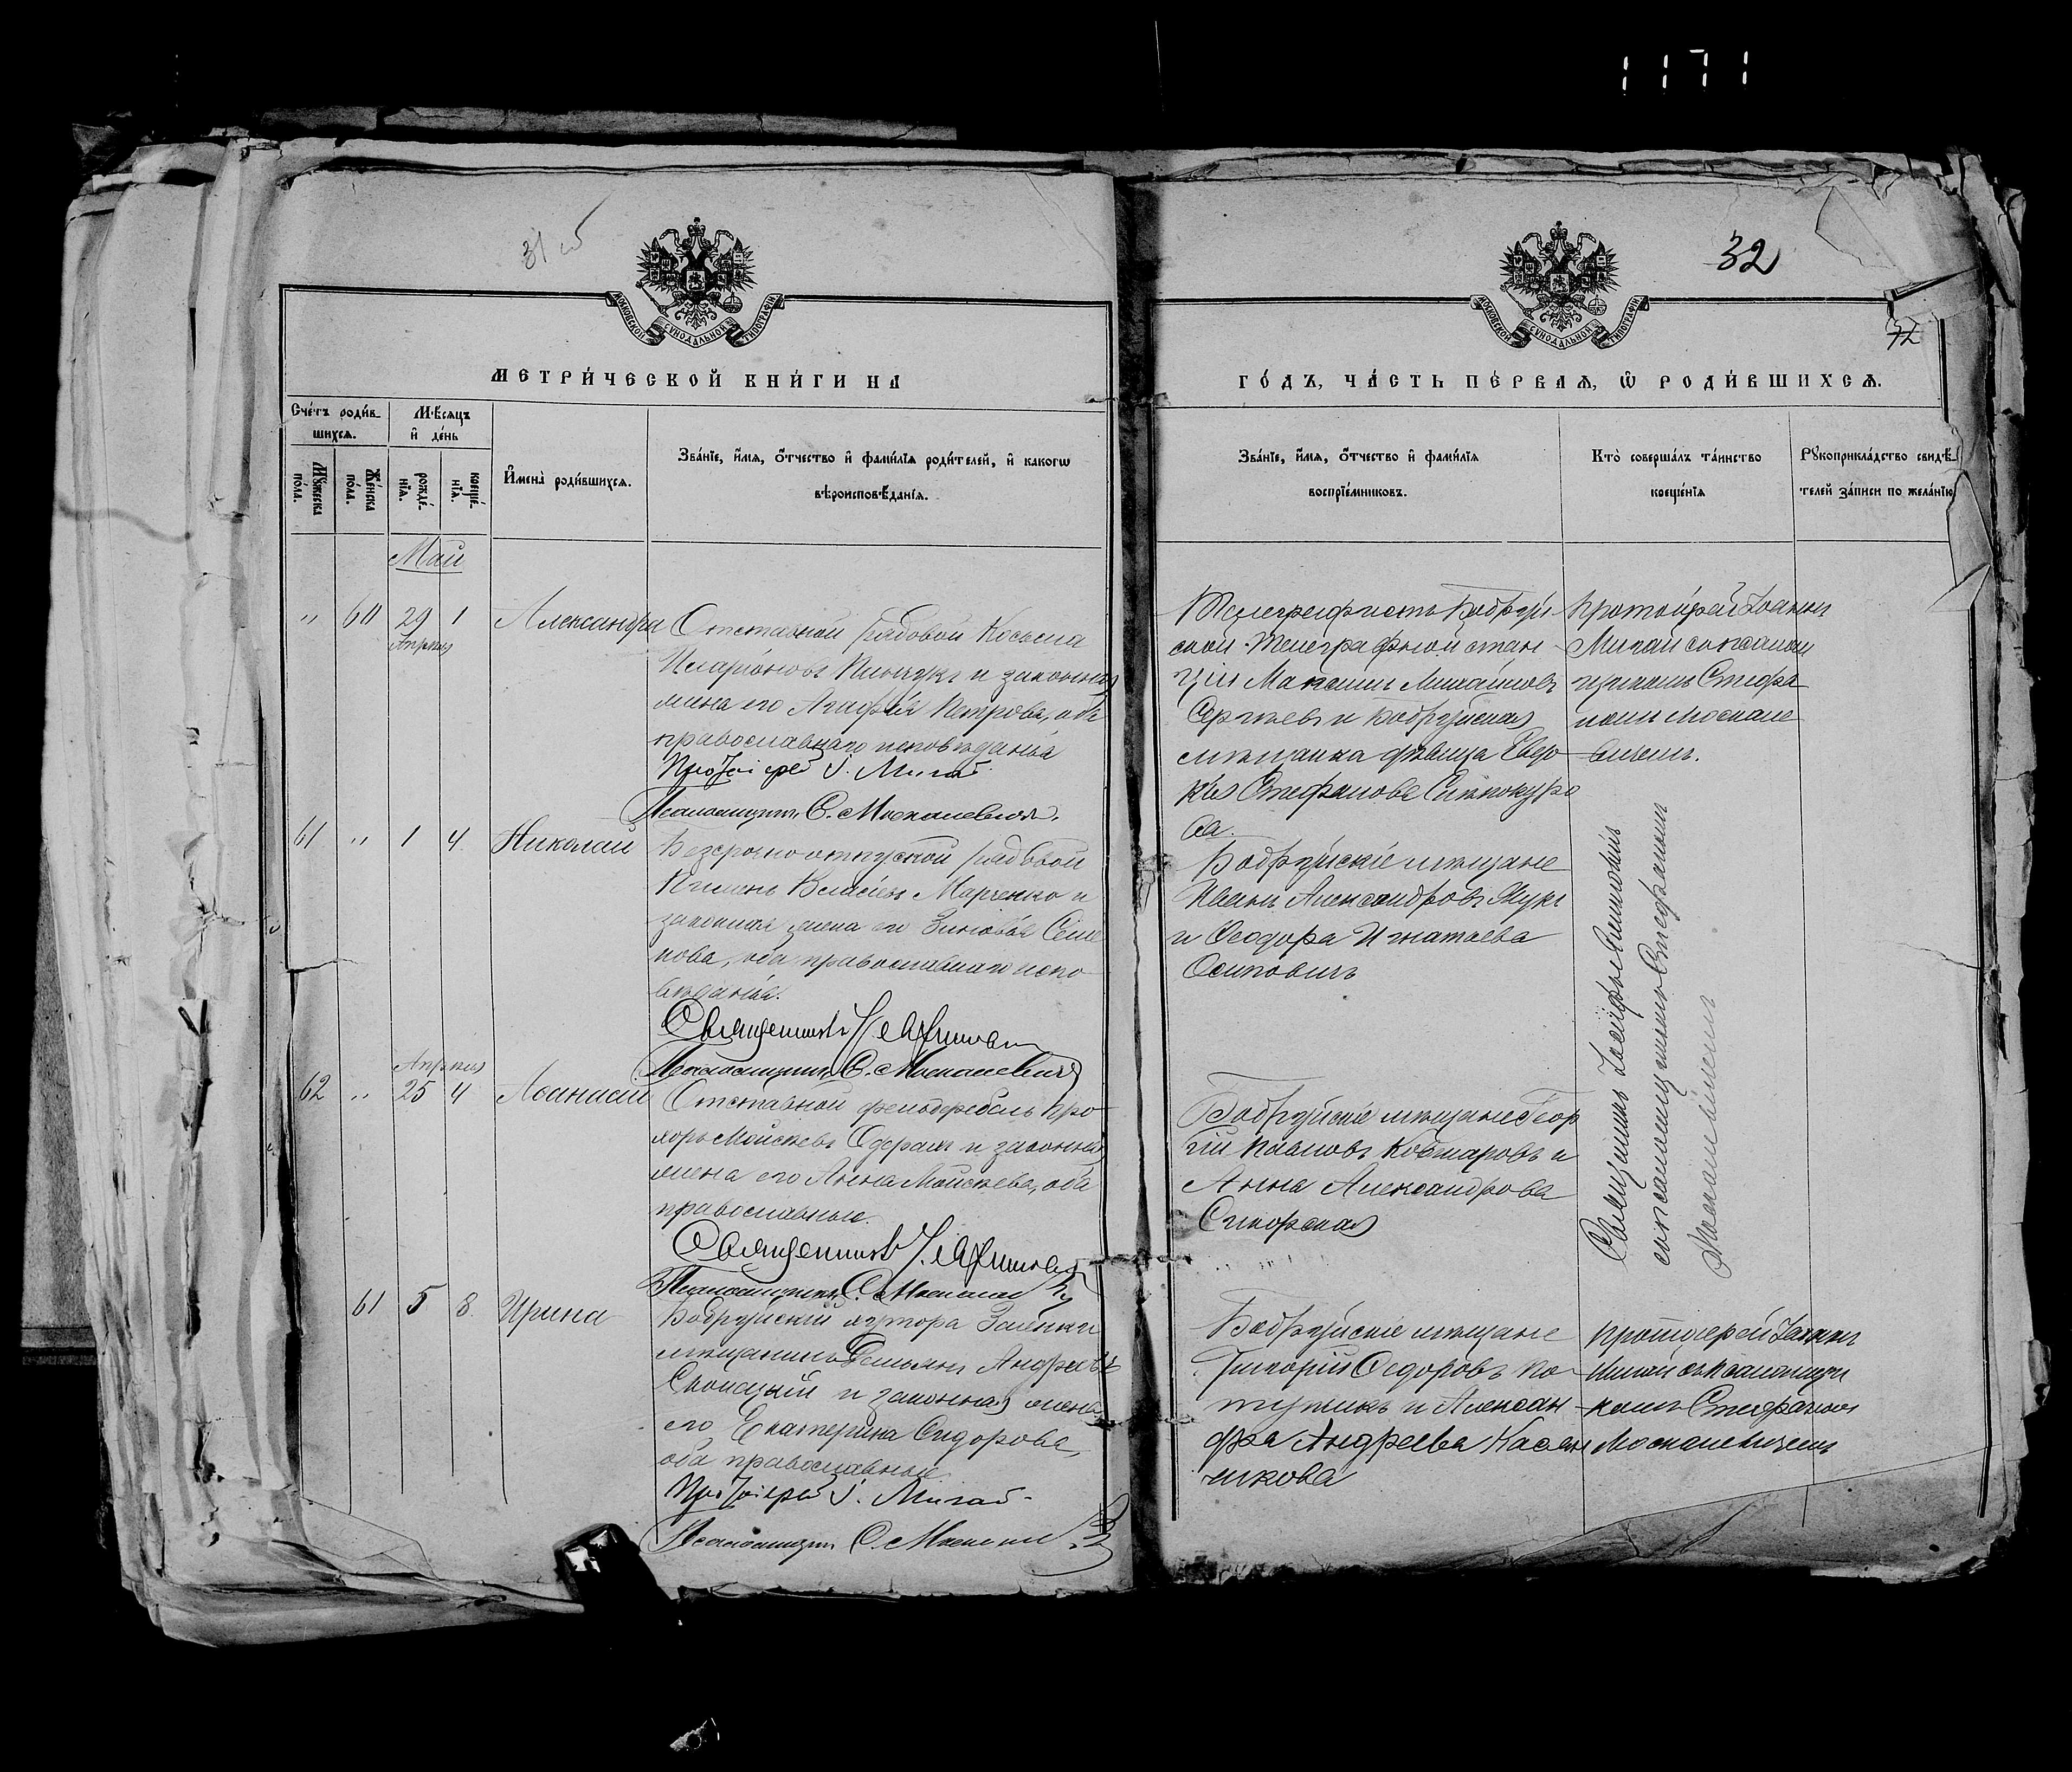 1171
31 об
32
32
МОСКОВСКОЙ СѴНОДАЛЬНОЙ ТИПОГРАФІИ
МОСКОВСКОЙ СѴНОДАЛЬНОЙ ТИПОГРАФІИ
МЕТРИ́ЧЕСКОЙ КНИ́ГИ НА
ГО́ДЪ, ЧА́СТЬ ПЕ́РВАЯ, Ѿ РОДИ́ВШИХСЯ.
Сче́тъ роди́в-
шихся.
Мѣ́сяцъ
и де́нь
Мꙋ́жеска
по́ла.
Же́нска
по́ла.
рожде́-
нїя.
креще́-
нїя.
Имена̀ роди́вшихся.
Зва́нїе, и́мя, о́тчество и фами́лїя роди́телей, и како́гѡ
вѣроисповѣ́данїя.
Зва́нїе, и́мя, о́тчество и фами́лїя
воспрїе́мниковъ.
Кто̀ соверша́лъ та́инство
креще́нїя
Рꙋкоприкла́дство свидѣ́-
телей за́писи по жела́нїю
Май
" 60 29 1 Александра
Апрѣля
Отставной рядовой Косьма
Иларіоновъ Пинчукъ и законная
жена его Агафія Петрова, оба
православнаго исповѣданія
Протоіерей І. Мигай.
Псаломщикъ С. Москалевичъ.
Телеграфистъ Бобруй-
ской Телеграфной стан-
ціи Максимъ Михайловъ
Сергѣевъ и Бобруйская
мѣщанка дѣвица Евдо-
кія Стефанова Синнокуро
ва.
Протоіерей Іоаннъ
Мигай съ псалом
щикомъ Стефа
номъ Москале
вичемъ.
61 " 1 4 Николай
Безсрочноотпускной рядовой
Пименъ Власіевъ Марченко и
законная жена его Зиновія Семе
нова, оба православнаго испо-
вѣданія.
Священникъ
Псаломщикъ С. Москалевичъ
Бобруйскіе мѣщане
Иванъ Александровъ Жукъ
и Ѳеодора Игнатьева
Осиповичъ
Священникъ Іосифъ
съ псаломщикомъ Стефаномъ
Москалевичемъ
Апрѣля
62 " 25 4 Аѳанасій
Отставной фельдфебель Про-
хоръ Моисеевъ и законная
жена его Анна Моисеева, оба
православные.
Священникъ
Псаломщикъ С. Москалевичъ
Бобруйскіе мѣщане Геор
гій Павловъ Комаровъ и
Анна Александрова
Сикорская
61 5 8 Ирина
Бобруйскій хутора Заленки
мѣщанинъ Демьянъ Андреевъ
и законная жена
его Екатерина Сидорова,
оба православные
Протоіерей І. Мигай.
Псаломщикъ С. Москалевичъ
Бобруйскіе мѣщане
Григорій Ѳедоровъ По-
тупчикъ и Алексан-
дра Андреева Касян
чикова
Протоіерей Іоаннъ
Мигай съ псаломщи
комъ Стефаномъ
Москалевичемъ